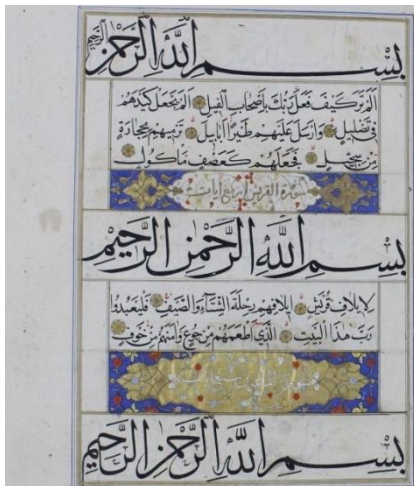 بسم الله الرحمن الرحيم
الم تر كيف فعل ربك باصحاب الفيل الم يجعل كيدهم
في تضليل وارسل عليهم طيرا ابابيل ترميهم بحجارة
من سجيل فجعلهم كعصف ماكول
سورة القريش اربع ايات
بسم الله الرحمن الرحيم
لايلاف قريش ايلافهم رحلة الشتاء والصيف فليعبدوا
رب هذا البيت الذي اطعمهم من جوع وامنهم من خوف
بسم الله الرحمن الرحيم